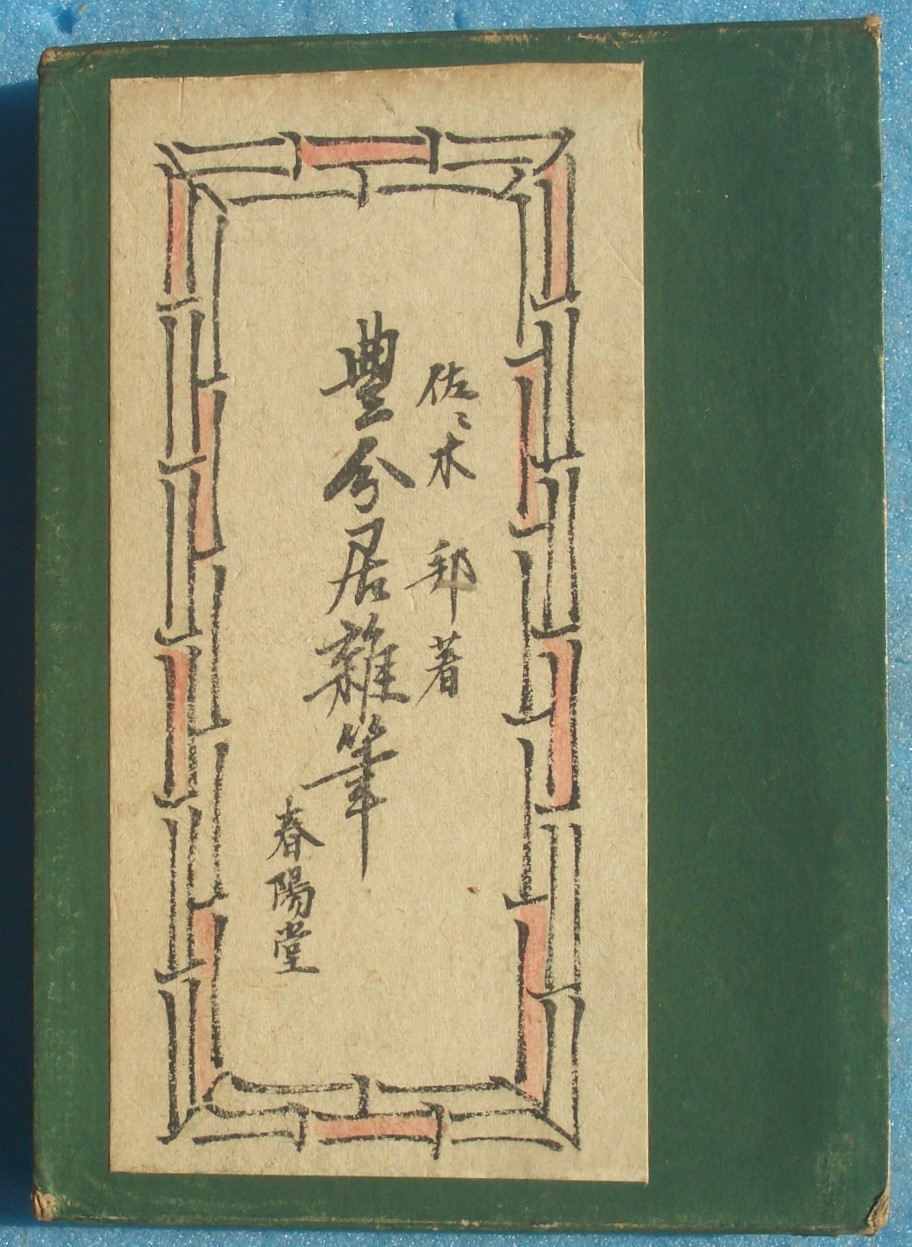 佐々木 邦著
豊分居雜筆
春陽堂